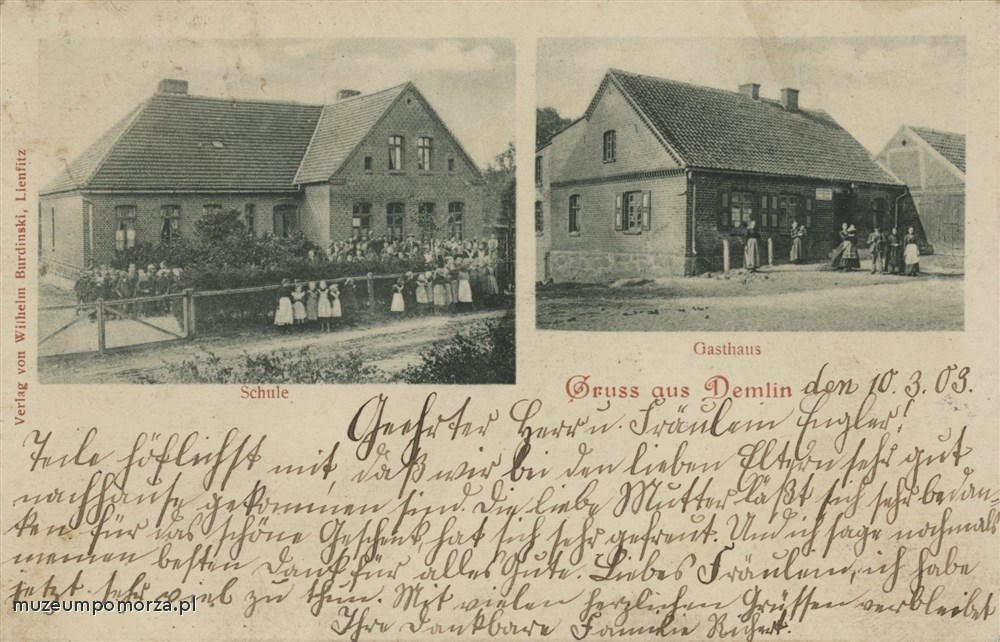 Verlag von Wilhelm Burdinski, Lienfitz
Schule
Gasthaus
Gruss aus Demlin den 10.3.03.
Geehrter Herr u. Fräulein Engler!
Teile höflichst mit, daß wir bei den lieben Eltern sehr gut
nachhause gekommen sind. Die liebe Mutter läßt sich sehr bedan-
ken für das schöne Geschenk, hat sich sehr gefreut. Und ich sage nochmals
meinen besten Dank für alles Gute. Liebes Fräulein, ich habe
jetzt sehr viel zu thun. Mit vielen herzlichen Grüssen verbleibet
Ihre Dankbare Familie Richert.
muzeumpomorza.pl